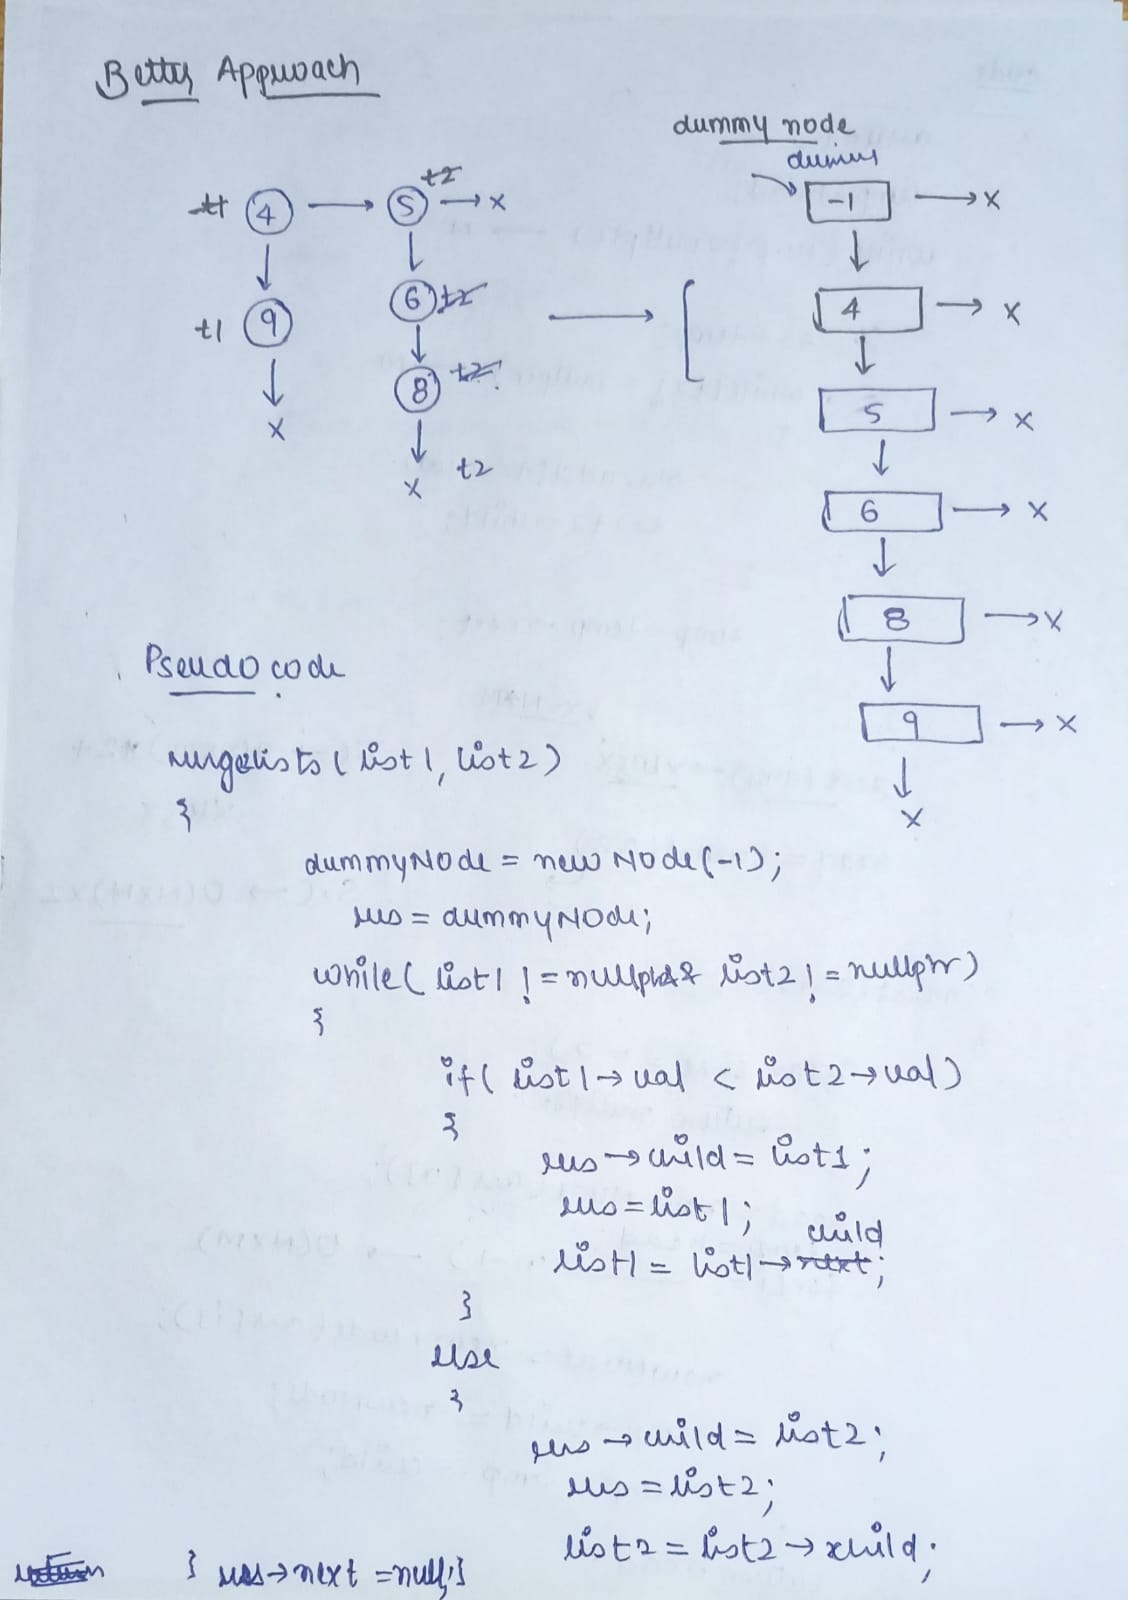 Better Approach
dummy node
dummy
t1 4 → 5 → x t2
-1 → x
6 t2
4 → x
t1 9
8 t2
5 → x
x
x t2
6 → x
8 → x
Pseudo code
9 → x
mergelists (list1, list2)
x
{
dummyNode = new Node(-1);
res = dummyNode;
while( list1 != nullptr && list2 != nullptr)
{
if( list1→val < list2→val)
{
res→child = list1;
res = list1;
child
list1 = list1→next;
}
else
{
res → child = list2;
res = list2;
list2 = list2 → child;
return } res→next = null;}